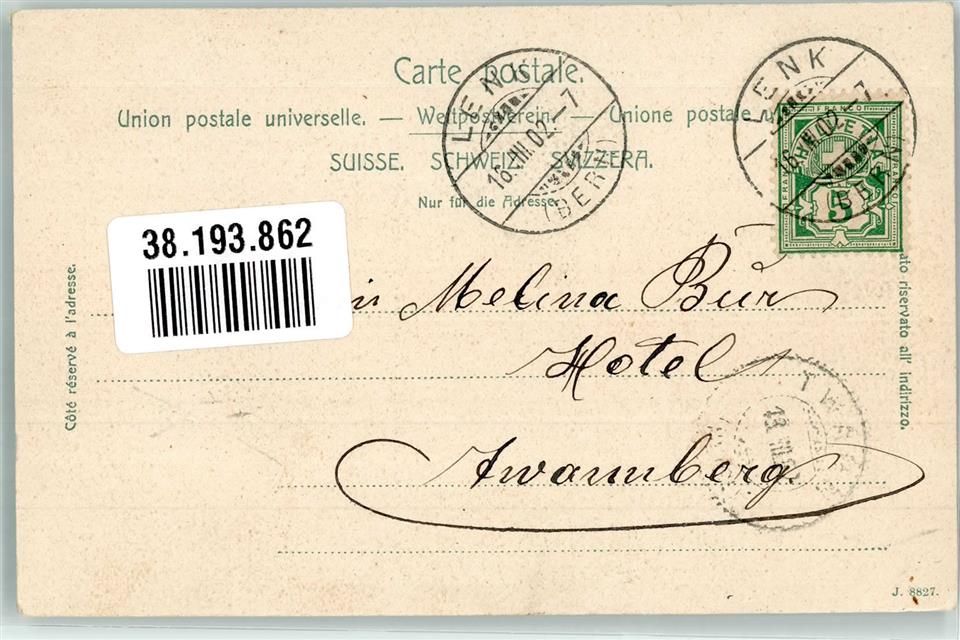 Carte postale.
Union postale universelle. — Weltpostverein. — Unione postale
SUISSE. SCHWEIZ. SVIZZERA.
Nur für die Adresse.
LENK
16.VIII.02.—7
(BERN)
LENK
16.VIII.02.—7
(BERN)
FRANCO
HELVETIA
5
38.193.862
Côté réservé à l'adresse.
Melina Bür
Hotel
Twannberg
TW
ato riservato all' indirizzo.
J. 8827.